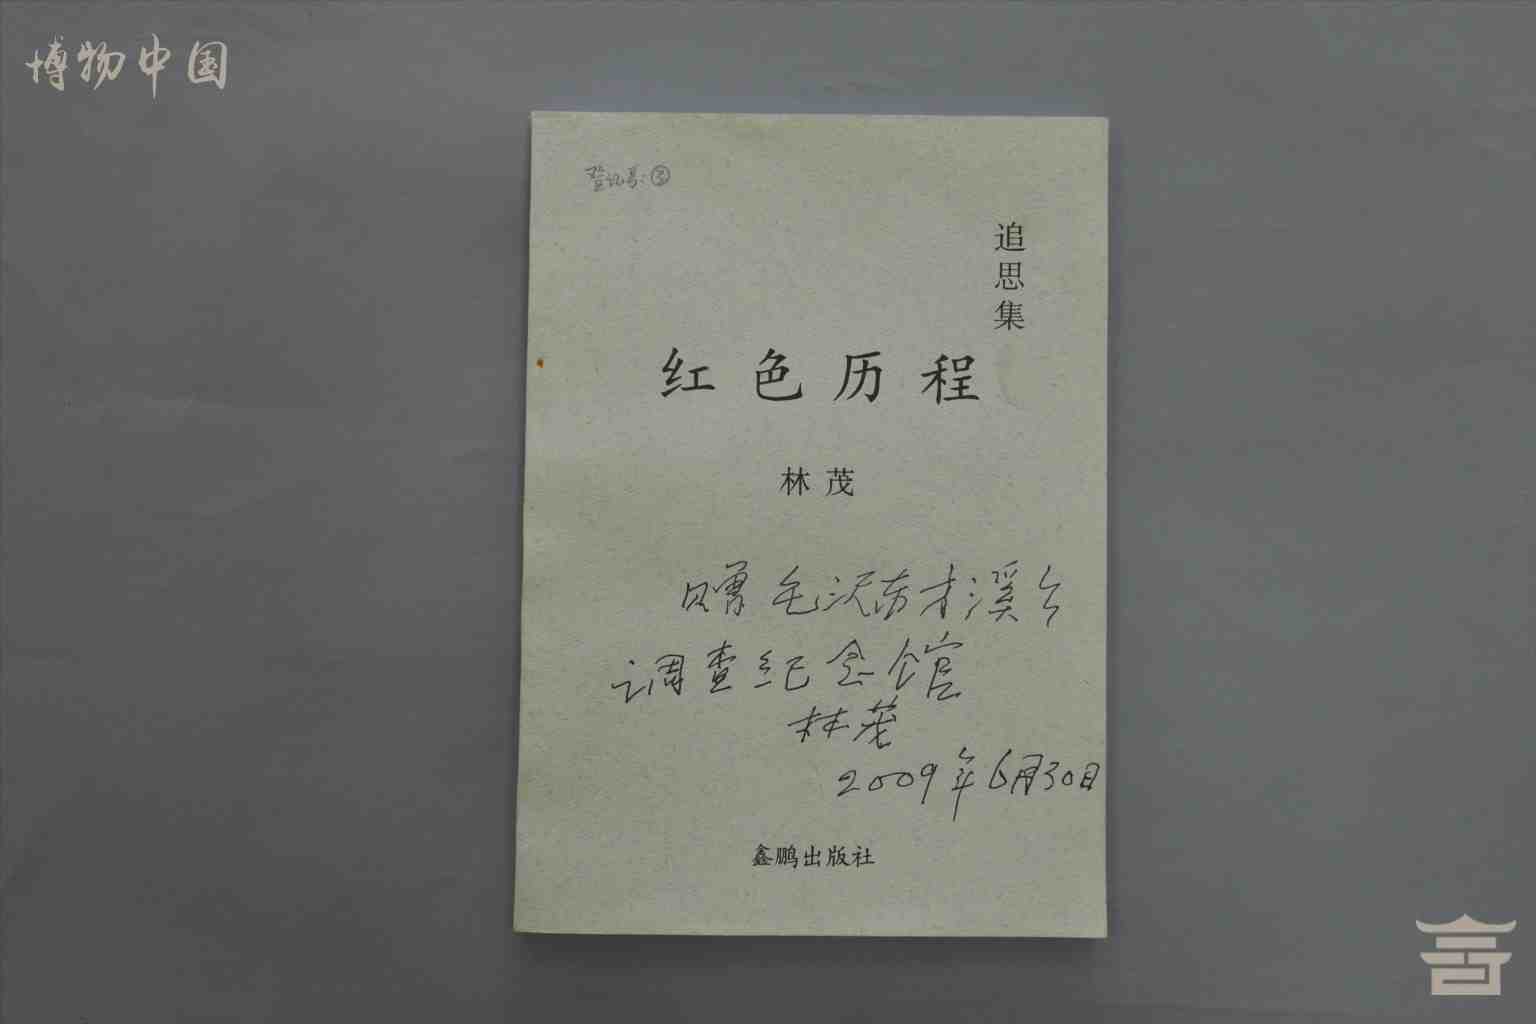 博物中国
登记号:③
追思集
红色历程
林茂
赠毛泽东才溪乡
调查纪念馆
林茂
2009年6月30日
鑫鹏出版社